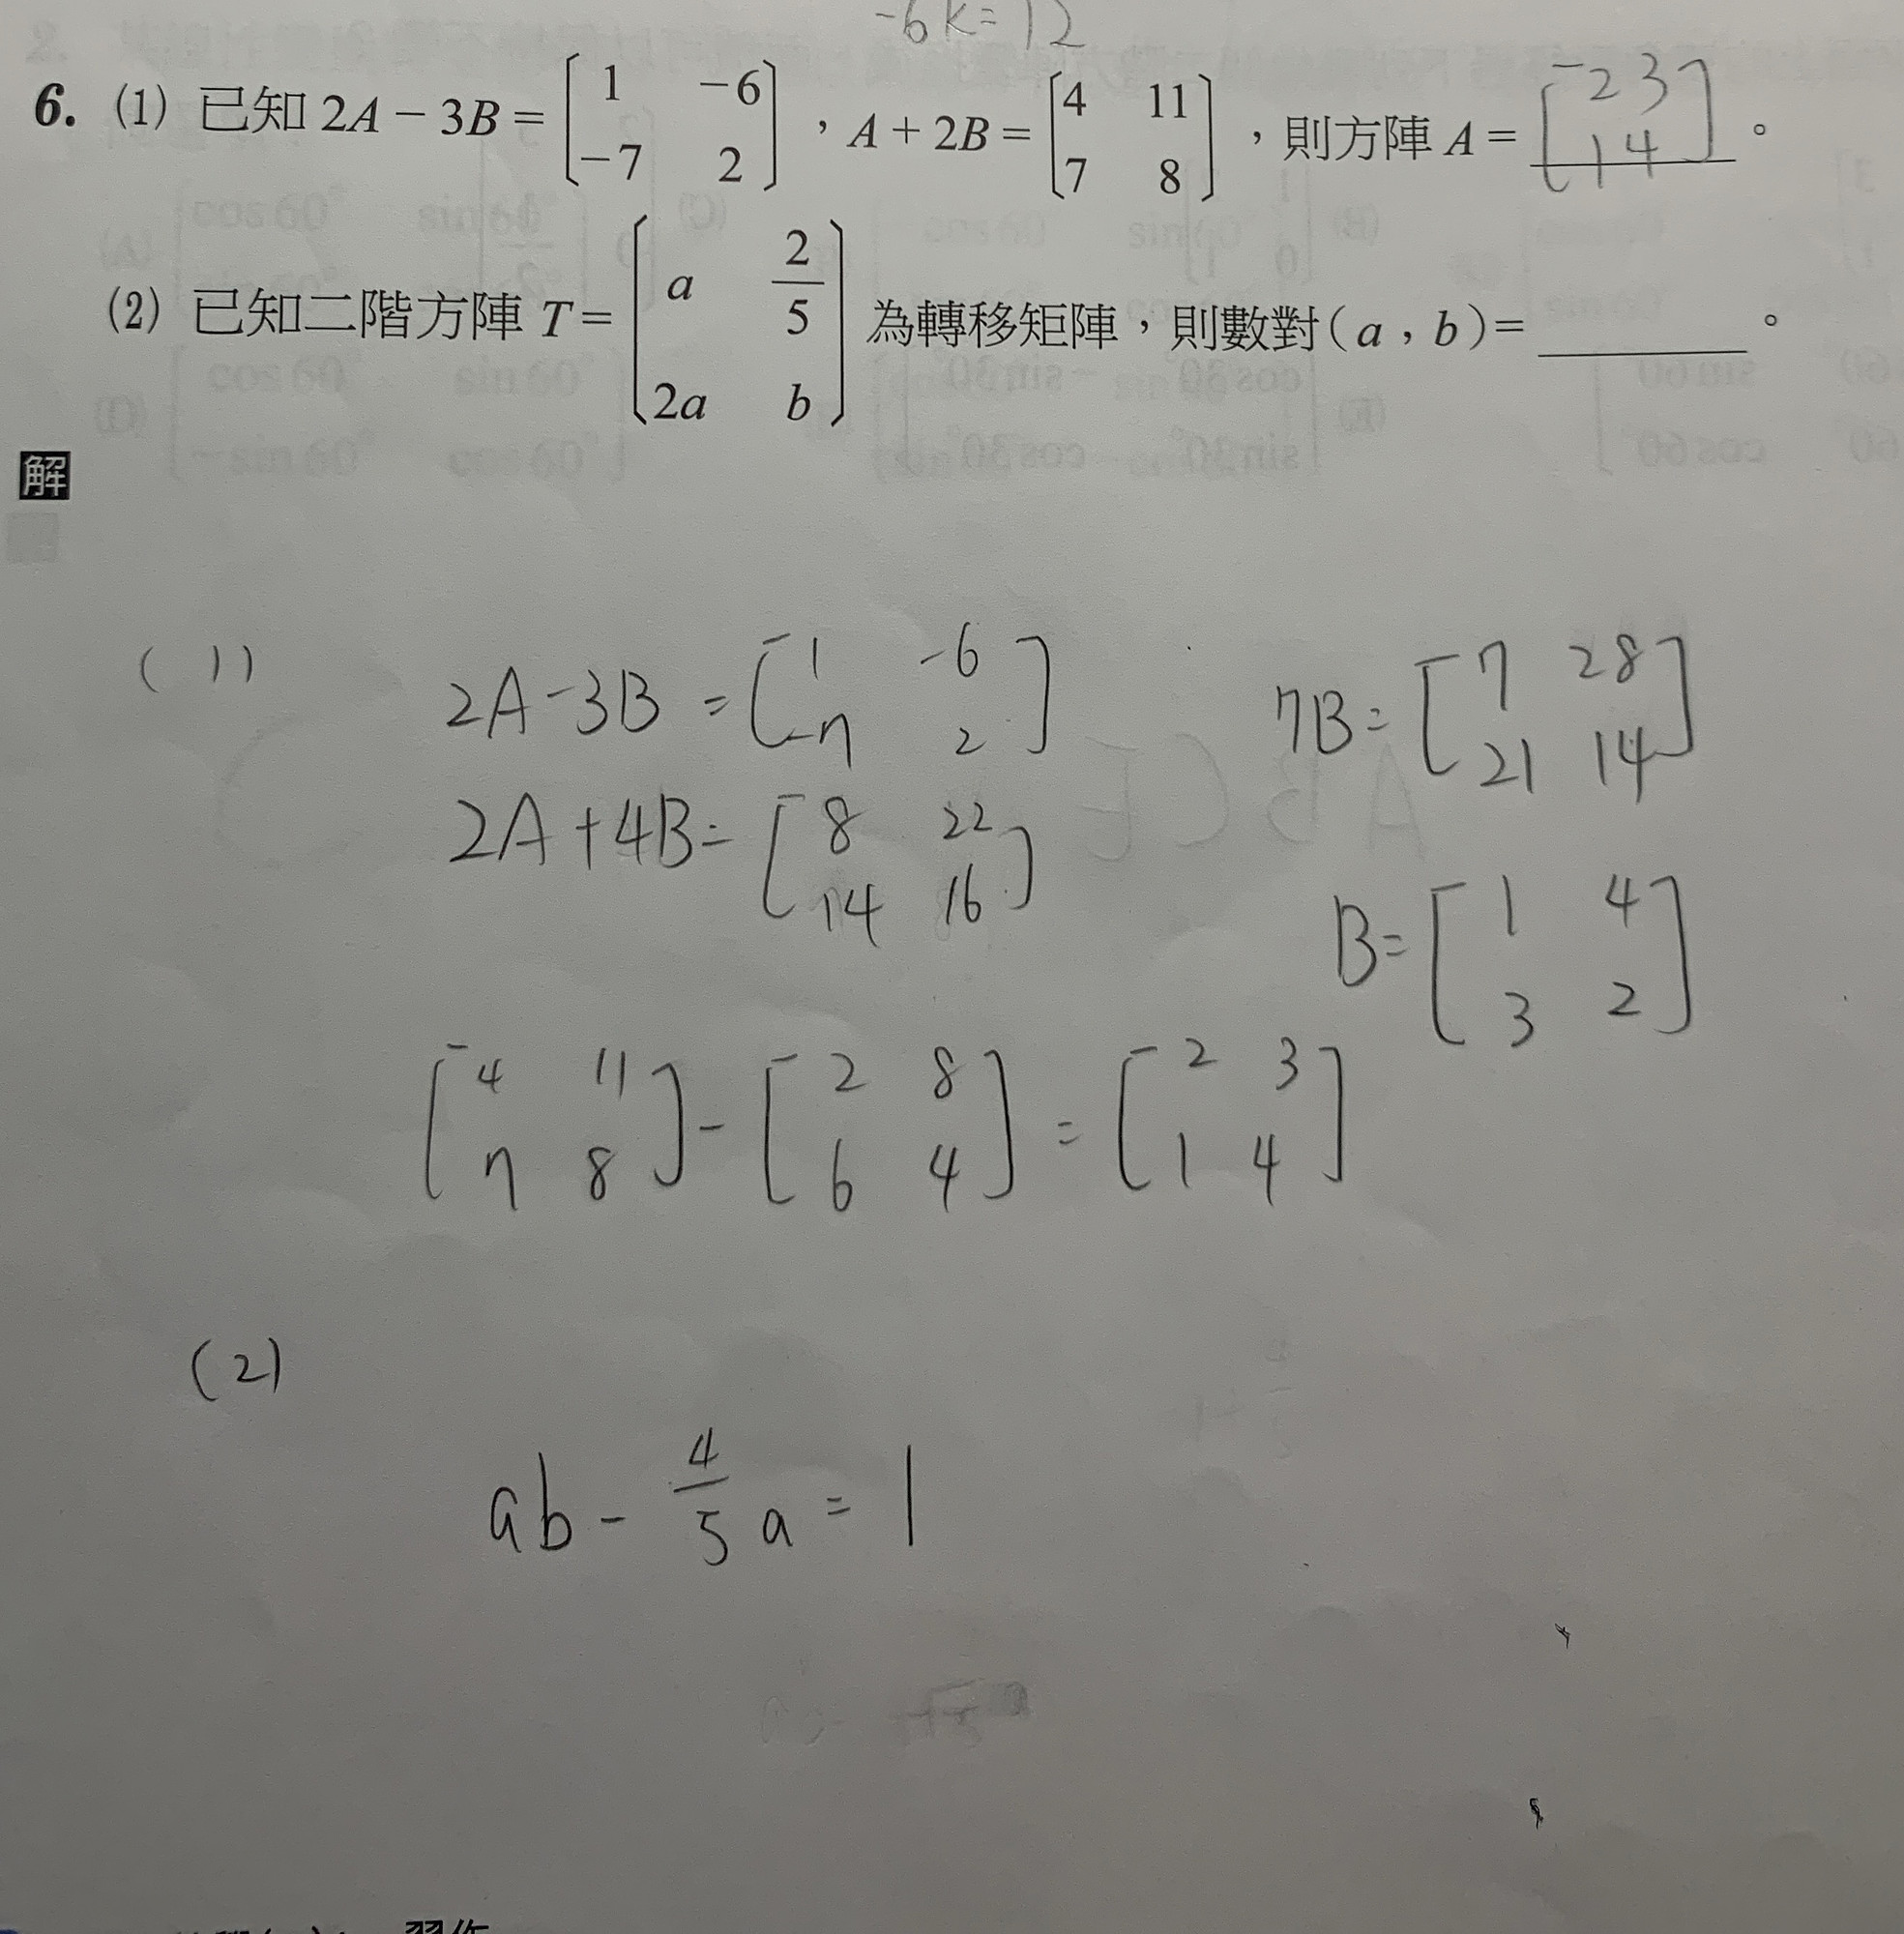 -6k=12
6. (1) 已知 2A－3B＝[1 －6 ; －7 2]，A＋2B＝[4 11 ; 7 8]，則方陣 A＝[2 3 ; 1 4]。
(2) 已知二階方陣 T＝[a 2/5 ; 2a b] 為轉移矩陣，則數對(a，b)＝________。
解
(1)
2A-3B = [1 -6 ; -7 2]
2A+4B= [8 22 ; 14 16]
7B= [7 28 ; 21 14]
B= [1 4 ; 3 2]
[4 11 ; 7 8] - [2 8 ; 6 4] = [2 3 ; 1 4]
(2)
ab - 4/5 a = 1